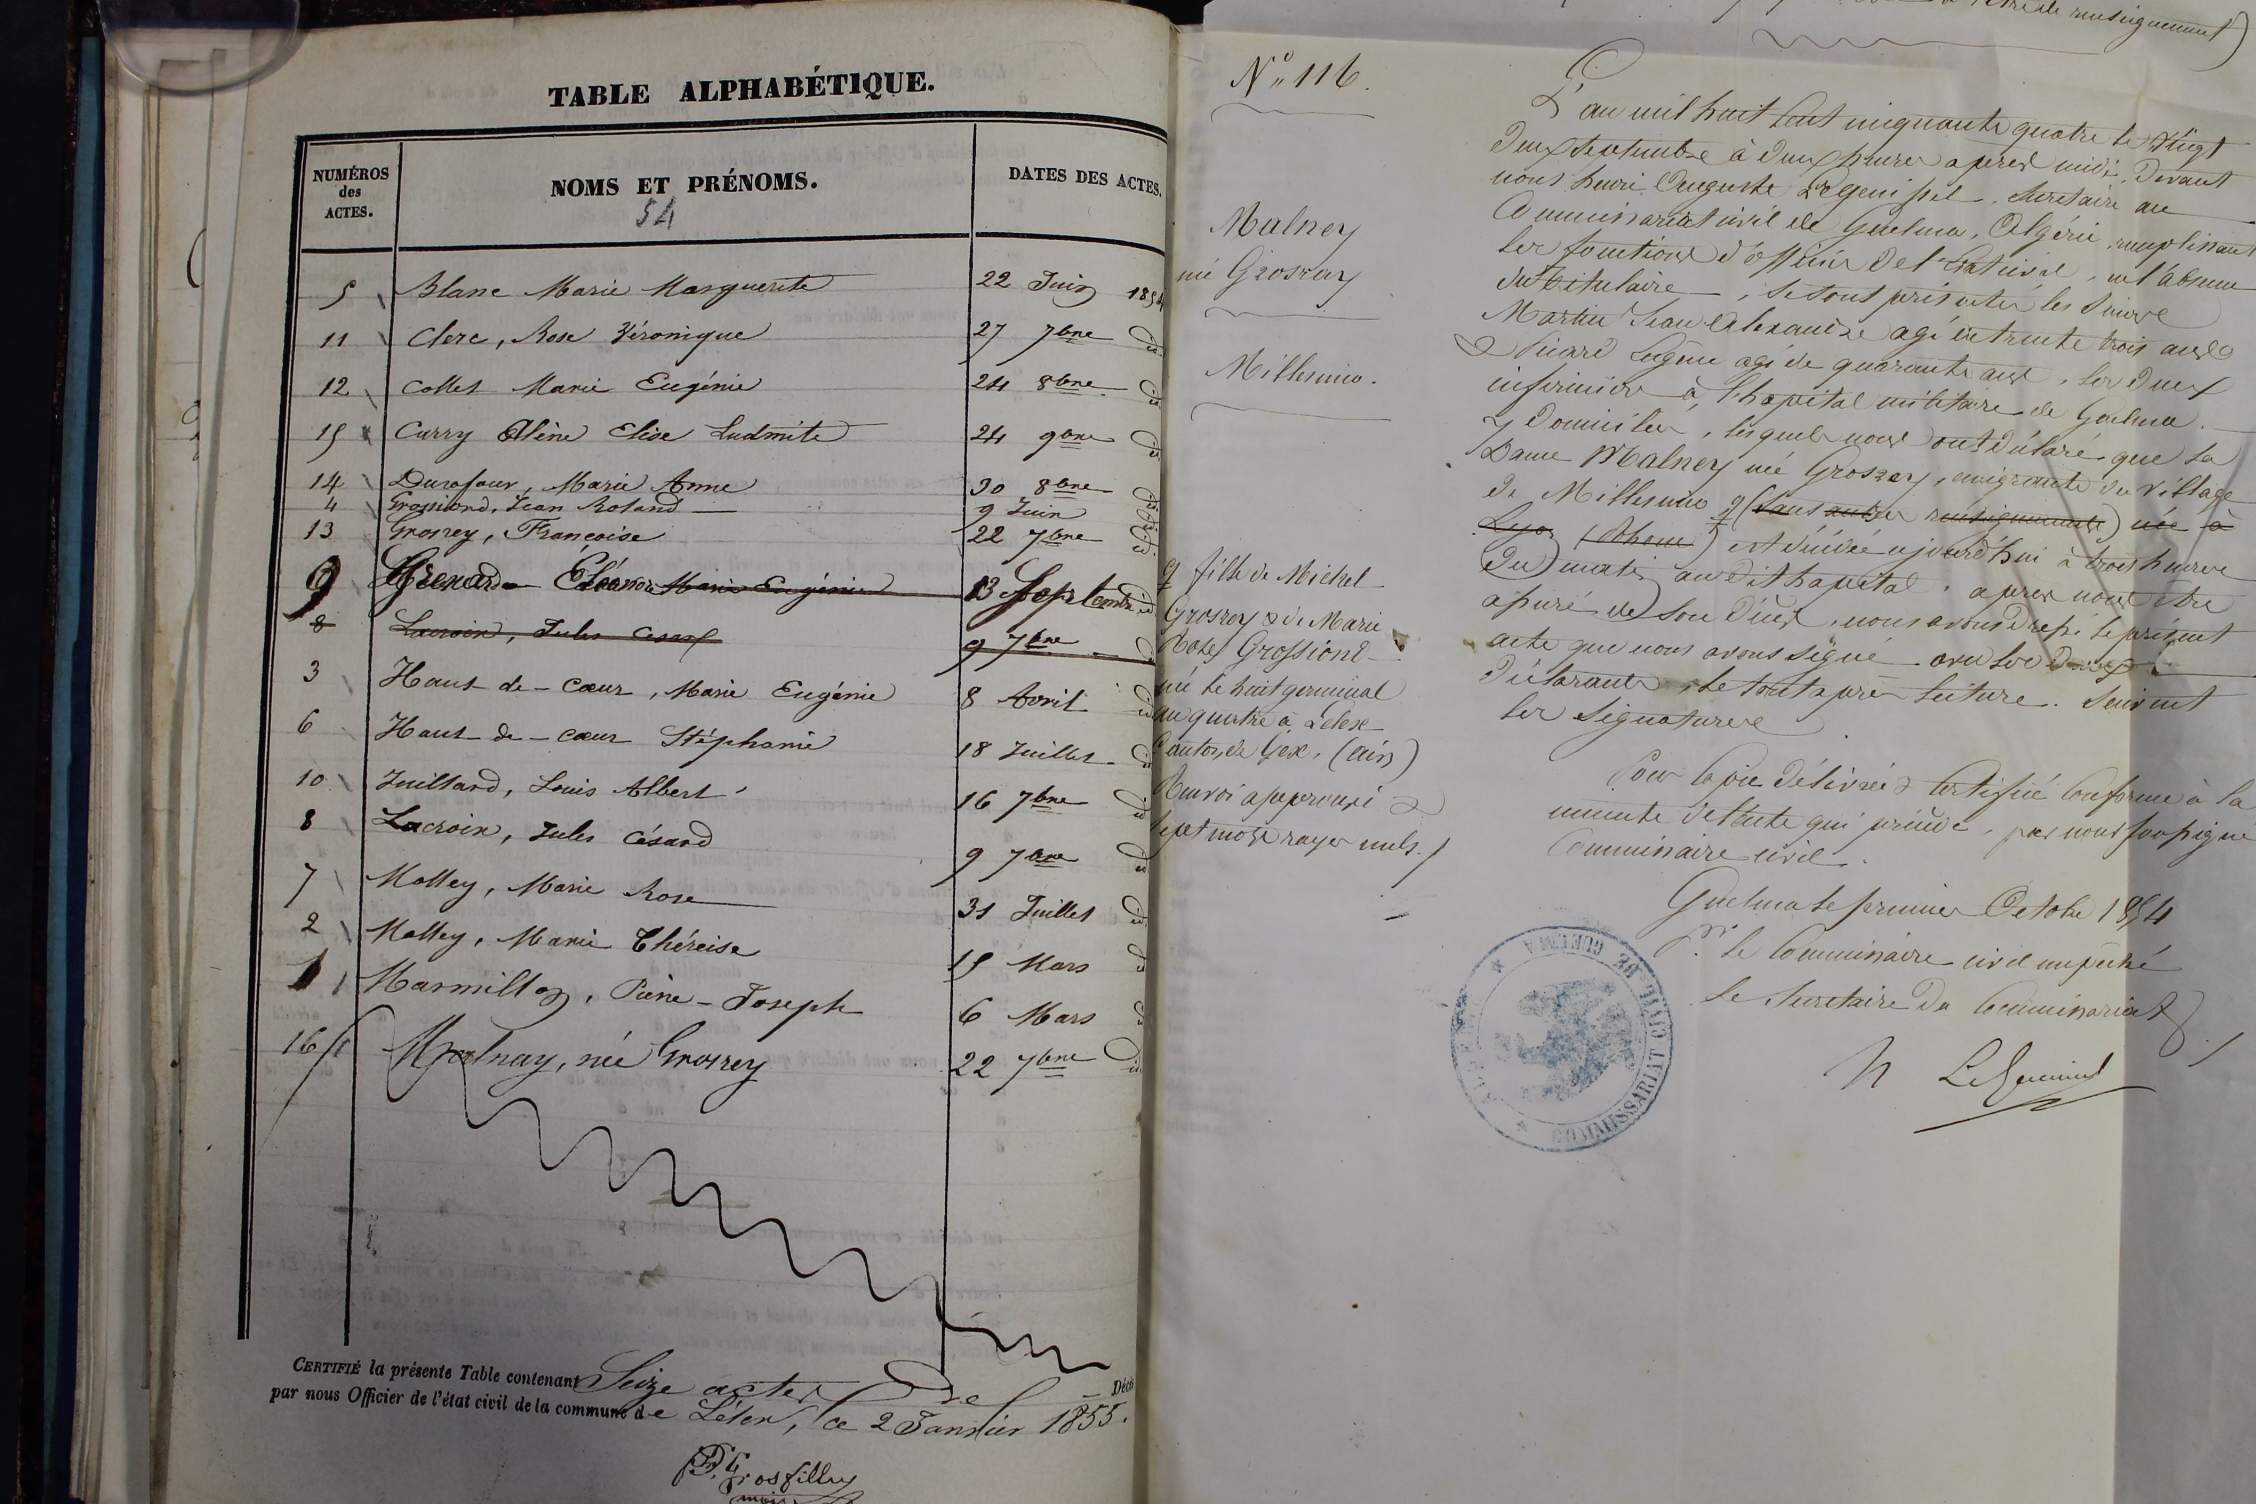 TABLE ALPHABÉTIQUE.
NUMÉROS des ACTES.
NOMS ET PRÉNOMS.
DATES DES ACTES.
54
5 Blanc Marie Marguerite 22 Juin 1854
11 Clerc, Rose Véronique 27 7bre d°
12 Collet Marie Eugénie 24 8bre d°
15 Curry Elise Ludmite 24 9bre d°
14 Durafour, Marie Anne 30 8bre d°
4 Grossiord, Jean Roland 9 Juin d°
13 Grosrey, Françoise 22 7bre d°
9 Grenard Éléonore Marie Eugénie 13 Septembre d°
8 Lacroix, Jules Cesar 9 7bre d°
3 Haut-de-cœur, Marie Eugénie 8 Avril d°
6 Haut-de-cœur Stéphanie 18 Juillet d°
10 Juilland, Louis Albert 16 7bre d°
8 Lacroix, Jules Césard 9 7bre d°
7 Molley, Marie Rose 31 Juillet d°
2 Molley, Marie Théreise 15 Mars d°
1 Marmillon, Pierre-Joseph 6 Mars d°
16 Malnay, née Grosrey 22 7bre d°
CERTIFIÉ la présente Table contenant Seize actes de Décès
par nous Officier de l'état civil de la commune de Lélex, ce 2 Janvier 1855.
Grosfilley
maire
renseignement)
N° 116.
Malney
née Grosrey
Millesimo.
fille de Michel
Grosrey & de Marie
Roze Grossiord
née le huit germinal
an quatre à Lélex
Canton de Gex, (ain)
Renvoi approuvé &
sept mots rayés nuls.
L'an mil huit cent cinquante quatre le vingt
deux septembre à deux heures après midi, Devant
nous henri Auguste, Secrétaire au
Commissariat civil de Guelma, Algérie, remplissant
les fonctions d'officier de l'Etat civil, en l'absence
du titulaire, se sont présentés les sieurs
Martin Jean Alexandre agé de trente trois ans
& Picard Eugène agé de quarante ans, les deux
infirmiers à l'hopital militaire de Guelma.
y domiciliés, lesquels nous ont déclaré que la
Dame Malney née Grosrey, emigrante du village
de Millesimo (sans autre renseignements) née à
Lyon (Rhone) est décédée aujourd'hui à trois heures
du matin audit hopital. après nous être
assuré de son décès, nous avons dressé le présent
acte que nous avons signé avec les deux
déclarants, le tout après lecture. Suivent
les signatures
Pour copie délivrée & certifiée conforme à la
minute de l'acte qui précède, par nous soussigné
Commissaire civil.
Guelma le premier Octobre 1854
Pr. le Commissaire civil empêché
Le Secrétaire du Commissariat
COMMISSARIAT CIVIL DE GUELMA